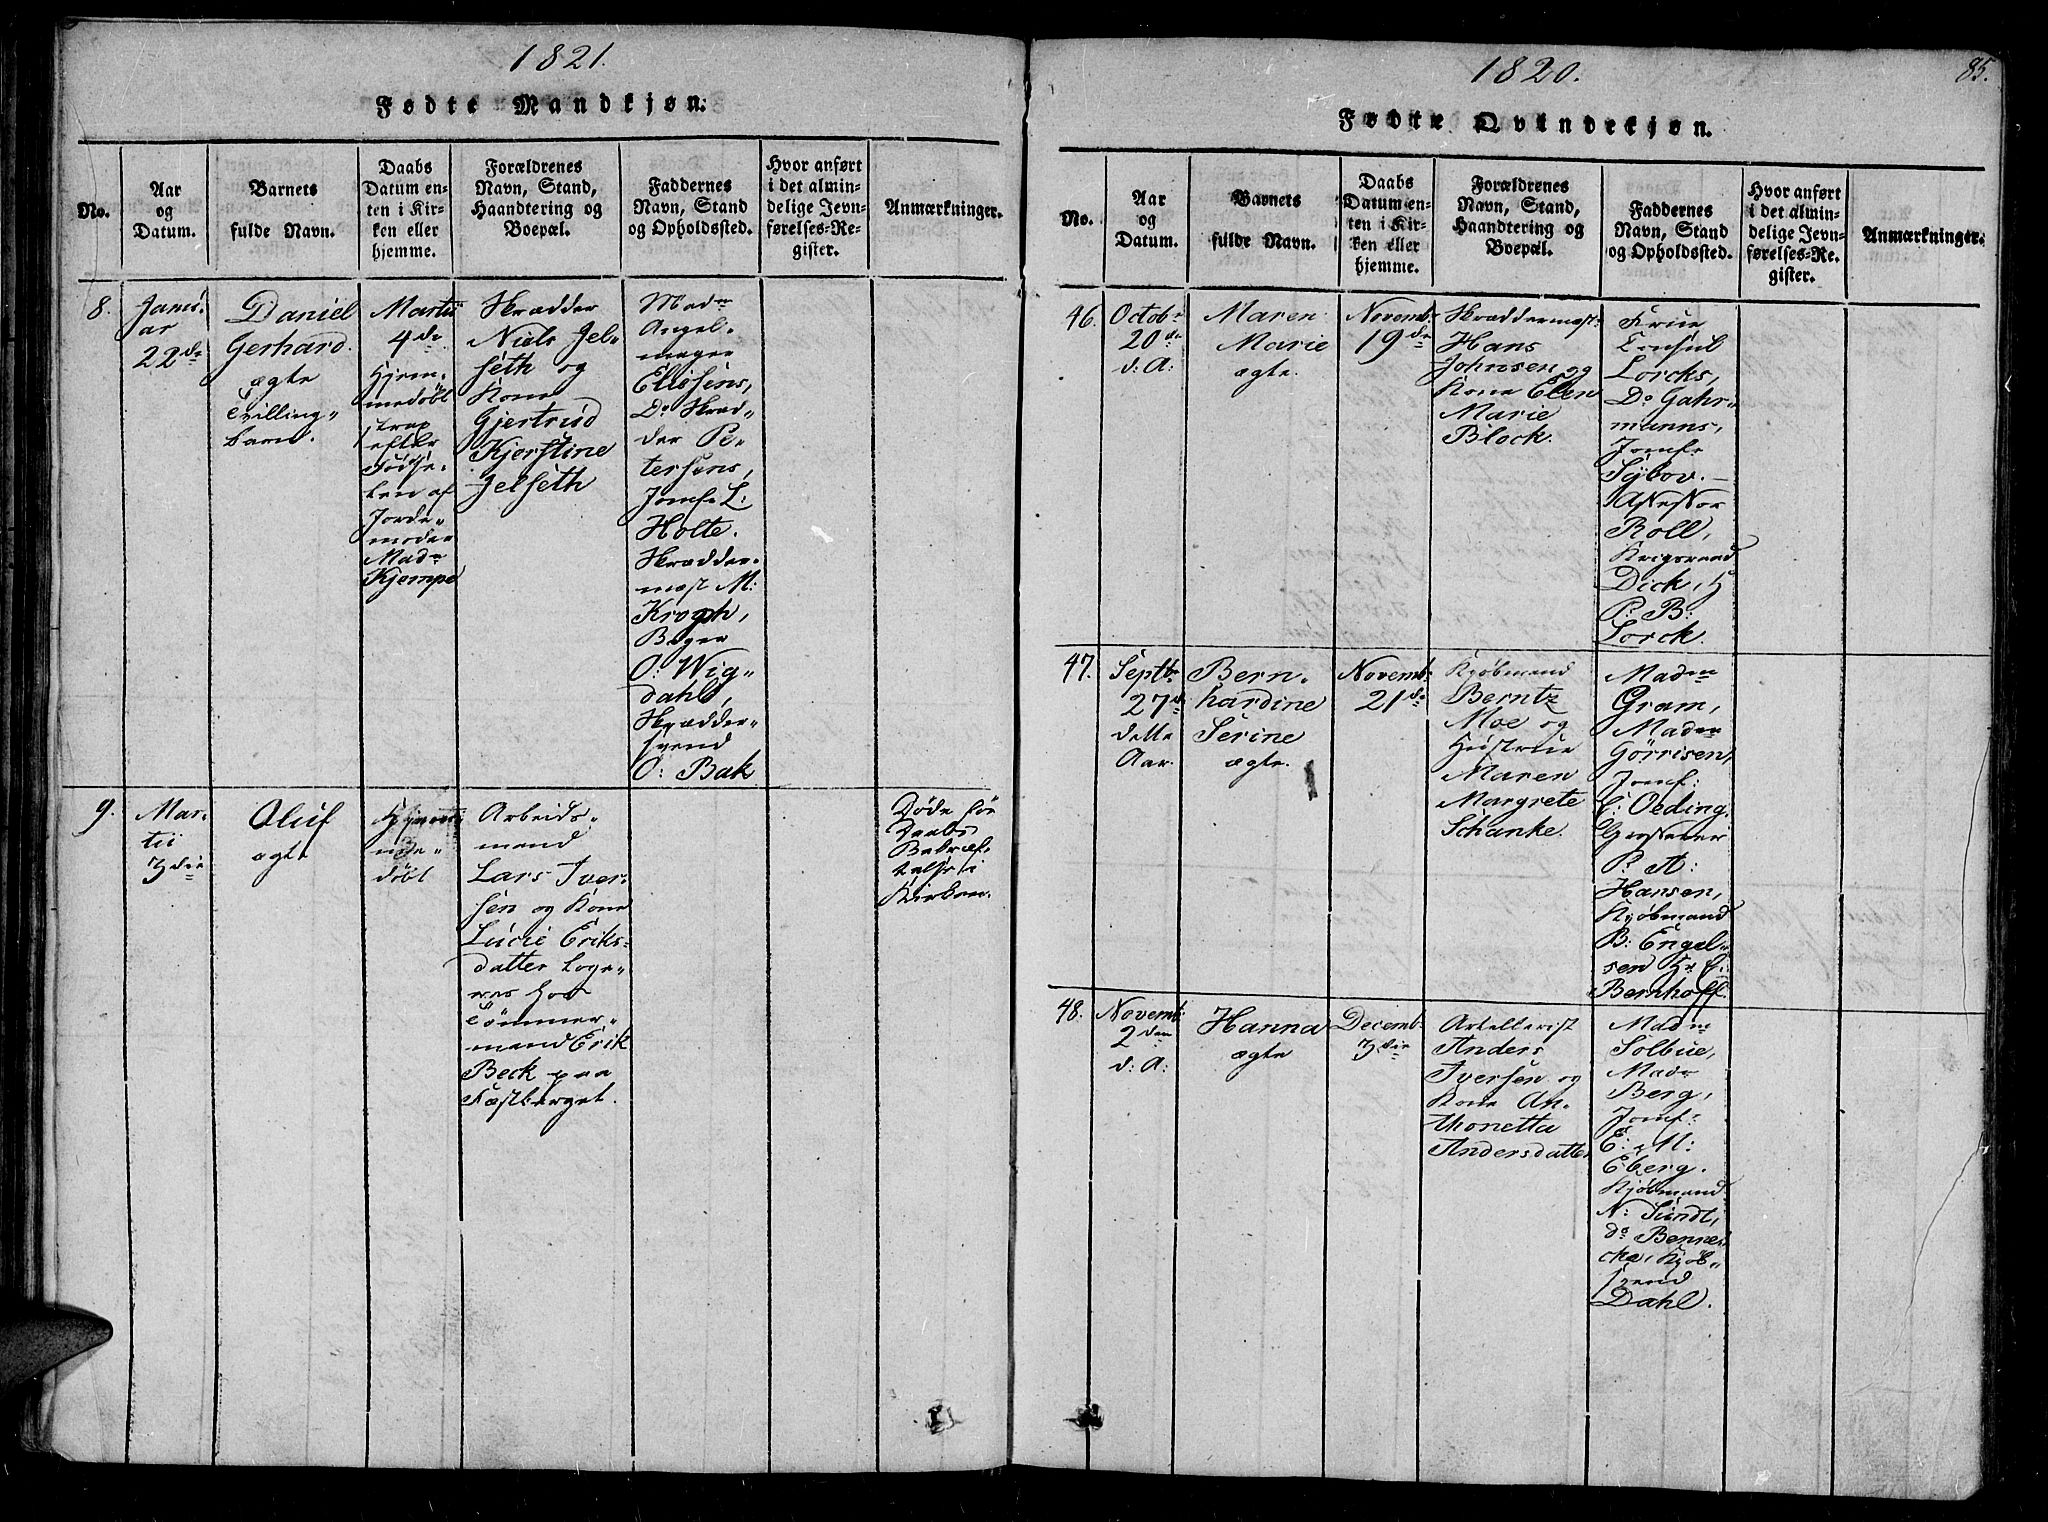 1821.
Fødte Mandkjøn.
No.
Aar
og
Datum.
Barnets
fulde Navn.
Daabs
Datum en-
ten i Kir-
ken eller
hjemme.
Forældrenes
Navn, Stand,
Haandtering og
Boepæl.
Faddernes
Navn, Stand
og Opholdssted.
Hvor anført
i det almin-
delige Jevn-
førelses-Re-
gister.
Anmærkninger.
8.
Janu-
ar
22de
Daniel
Gerhard
ægte
Tvilling-
barn.
Martii
4de
Hjem-
medöbt
strax
efter
Födse-
len af
Jorde-
moder
Madm
Kjempe
Skrædder
Niels Jel-
seth og
Kone
Gjertrud
Kjerstine
Jelseth
Madm
Angel-
mager
Eliesens,
Do Skræd-
der Pe-
tersens,
Jomfr L:
Holte.
Skrædder-
mest M:
Krogh,
Bager
O: Wig-
dahl,
Skrædder-
svend
O: Bak
9.
Mar-
tii
3die
Oluf
ægte
Hjem-
me-
döbt
Arbeids-
mand
Lars Iver-
sen og Kone
Lucie Eriks-
datter loge-
res hos
Tømmer-
mand Erik
Beck paa
Fæstberget.
Döde för
Daabs
Bekræf-
telse i
Kirken.
1820.
85.
Fødte Qvindekjøn.
No.
Aar
og
Datum.
Barnets
fulde Navn.
Daabs
Datum en-
ten i Kir-
ken eller
hjemme.
Forældrenes
Navn, Stand,
Haandtering og
Boepæl.
Faddernes
Navn, Stand
og Opholdssted.
Hvor anført
i det almin-
delige Jevn-
førelses-Re-
gister.
Anmærkninger.
46.
Octobr
20de
d: A:
Maren
Marie
ægte.
Novembr
19de
Skræddermest:
Hans
Johnsen og
Kone Elen
Marie
Block.
Frue
Consul
Lorcks,
Do Gahr-
manns,
Jomfr
Sybov.-
Assessor
Roll,
Krigsraad
Dick, H
P: B:
Lorck.
47.
Septbr
27de
dette
Aar.
Bern-
hardine
Serine
ægte.
Novemb:
21de
Kjöbmand
Berntz
Moe og
Hustrue
Maren
Margrete
Schanke.
Madm
Gram,
Madm
Görrisen,
Jomf:
C: Oeding.
P: A:
Hansen,
Kjöbmand
B: Engel-
sen Hr C:
Bernhoff.
48.
Novemb:
2den
d: A:
Hanna
ægte
Decemb:
3die
Artellerist
Anders
Iversen og
Kone An-
thonetta
Andersdatter
Madm
Solbue,
Madm
Berg,
Jomf:
E: M:
Eberg.
Kjöbmand
N: Sundt,
do Benne-
che, Kjöb-
svend
Dahl.